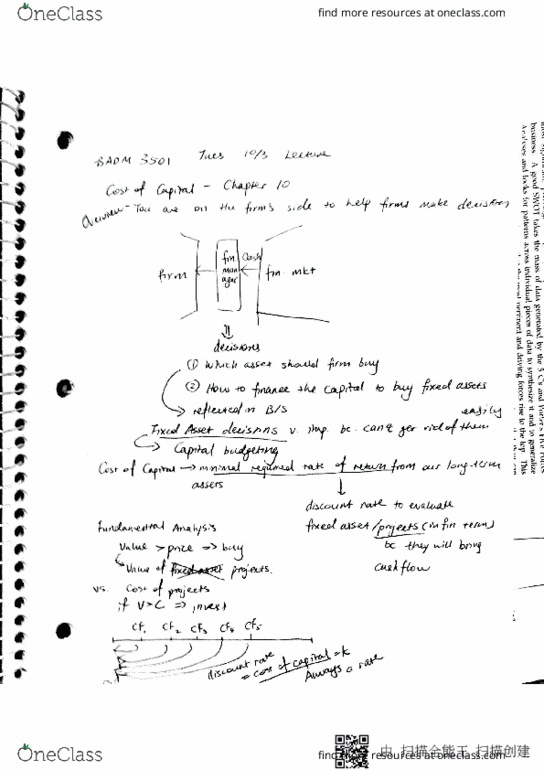 OneClass
find more resources at oneclass.com
BADM 3501 Tues 10/3 Lecture
Cost of Capital - Chapter 10
Overview - You are on the firm's side to help firms make decisions
firm
fin man ager
Cash
fin. mkt
decisions
① Which asset should firm buy
② How to finance the capital to buy fixed assets
reflected in B/S
easily
Fixed Asset decisions v. imp. bc. can't get rid of them
Capital budgeting
Cost of Capital → minimal required rate of return from our long-term
assets
discount rate to evaluate
fixed asset/projects (in fin terms)
bc. they will bring
cashflow
Fundamental Analysis
Value > price => buy
Value of fixed asset projects.
vs. Cost of projects
if V>C => invest
CF₁ CF₂ CF₃ CF₄ CF₅
discount rate
= cost of capital = k
Always a rate
business. A good SWOT takes the mass of data generated by the 5 C's and Porter's Five Forces
Analyses and looks for patterns across individual pieces of data to synthesize it and to generalize
the most pertinent and driving forces rise to the top. This
OneClass
find more resources at oneclass.com
扫描全能王 扫描创建